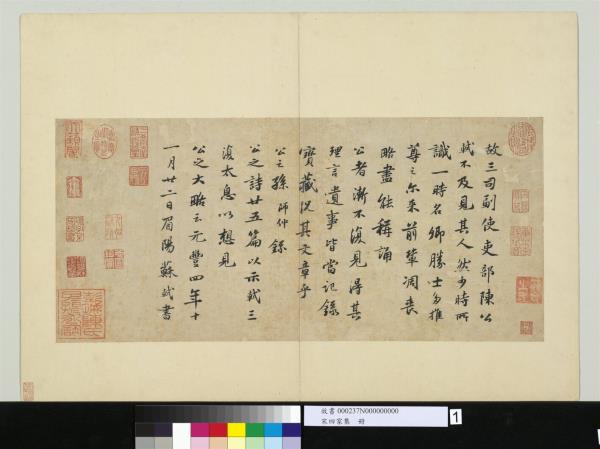 故三司副使吏部陳公
軾不及見其人然少時所
識一時名卿勝士多推
尊之尔来前輩凋喪
略盡能稱誦
公者漸不復見得其
理言遺事皆當記錄
寶藏況其文章乎
公之孫師仲錄
公之詩廿五篇以示軾三
復太息以想見
公之大略云元豐四年十
一月廿二日眉陽蘇軾書
故書 000237N000000000
宋四家集 冊
1